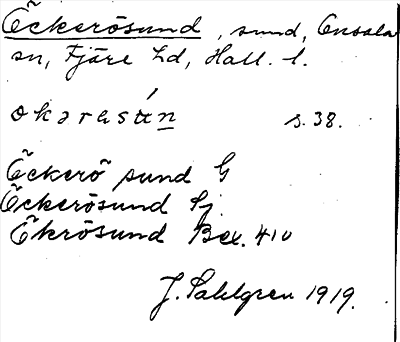 Öckerösund, sund, Onsala
sn, Fjäre hd, Hall. l.
okərəsún s. 38.
Öckerö sund G
Öckerösund Sj.
Ökrösund Bex. 410
J. Sahlgren 1919.